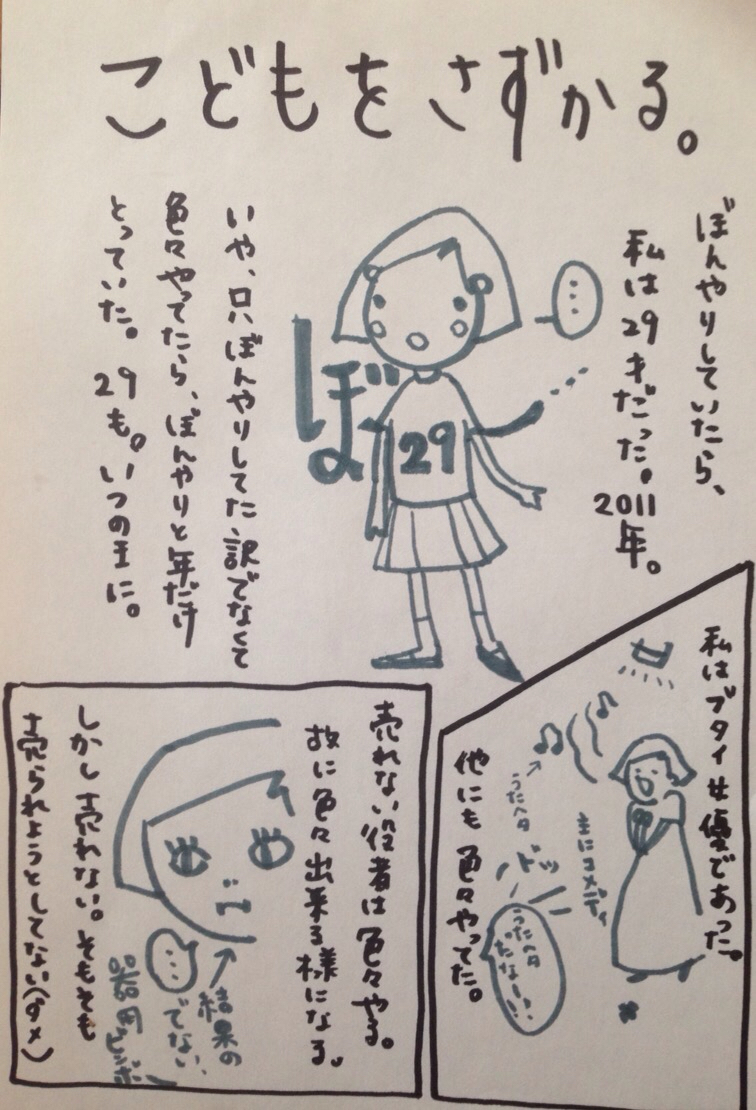 こどもをさずかる。
ぼんやりしていたら、
私は29才だった。
2011年。
…
29
ぼー
いや、只ぼんやりしてた訳でなくて
色々やってたら、ぼんやりと年だけ
とっていた。29も。いつの主に。
私はブタイ女優であった。
うたヘタ
主にコメディ
ドッ
うたヘタ
だな〜い!
他にも色々やってた。
売れない役者は色々やる。
故に色々出来る様になる。
…
結果の
でない、
器用ビンボー
しかし売れない。そもそも
売られようとしてない(ダメ)